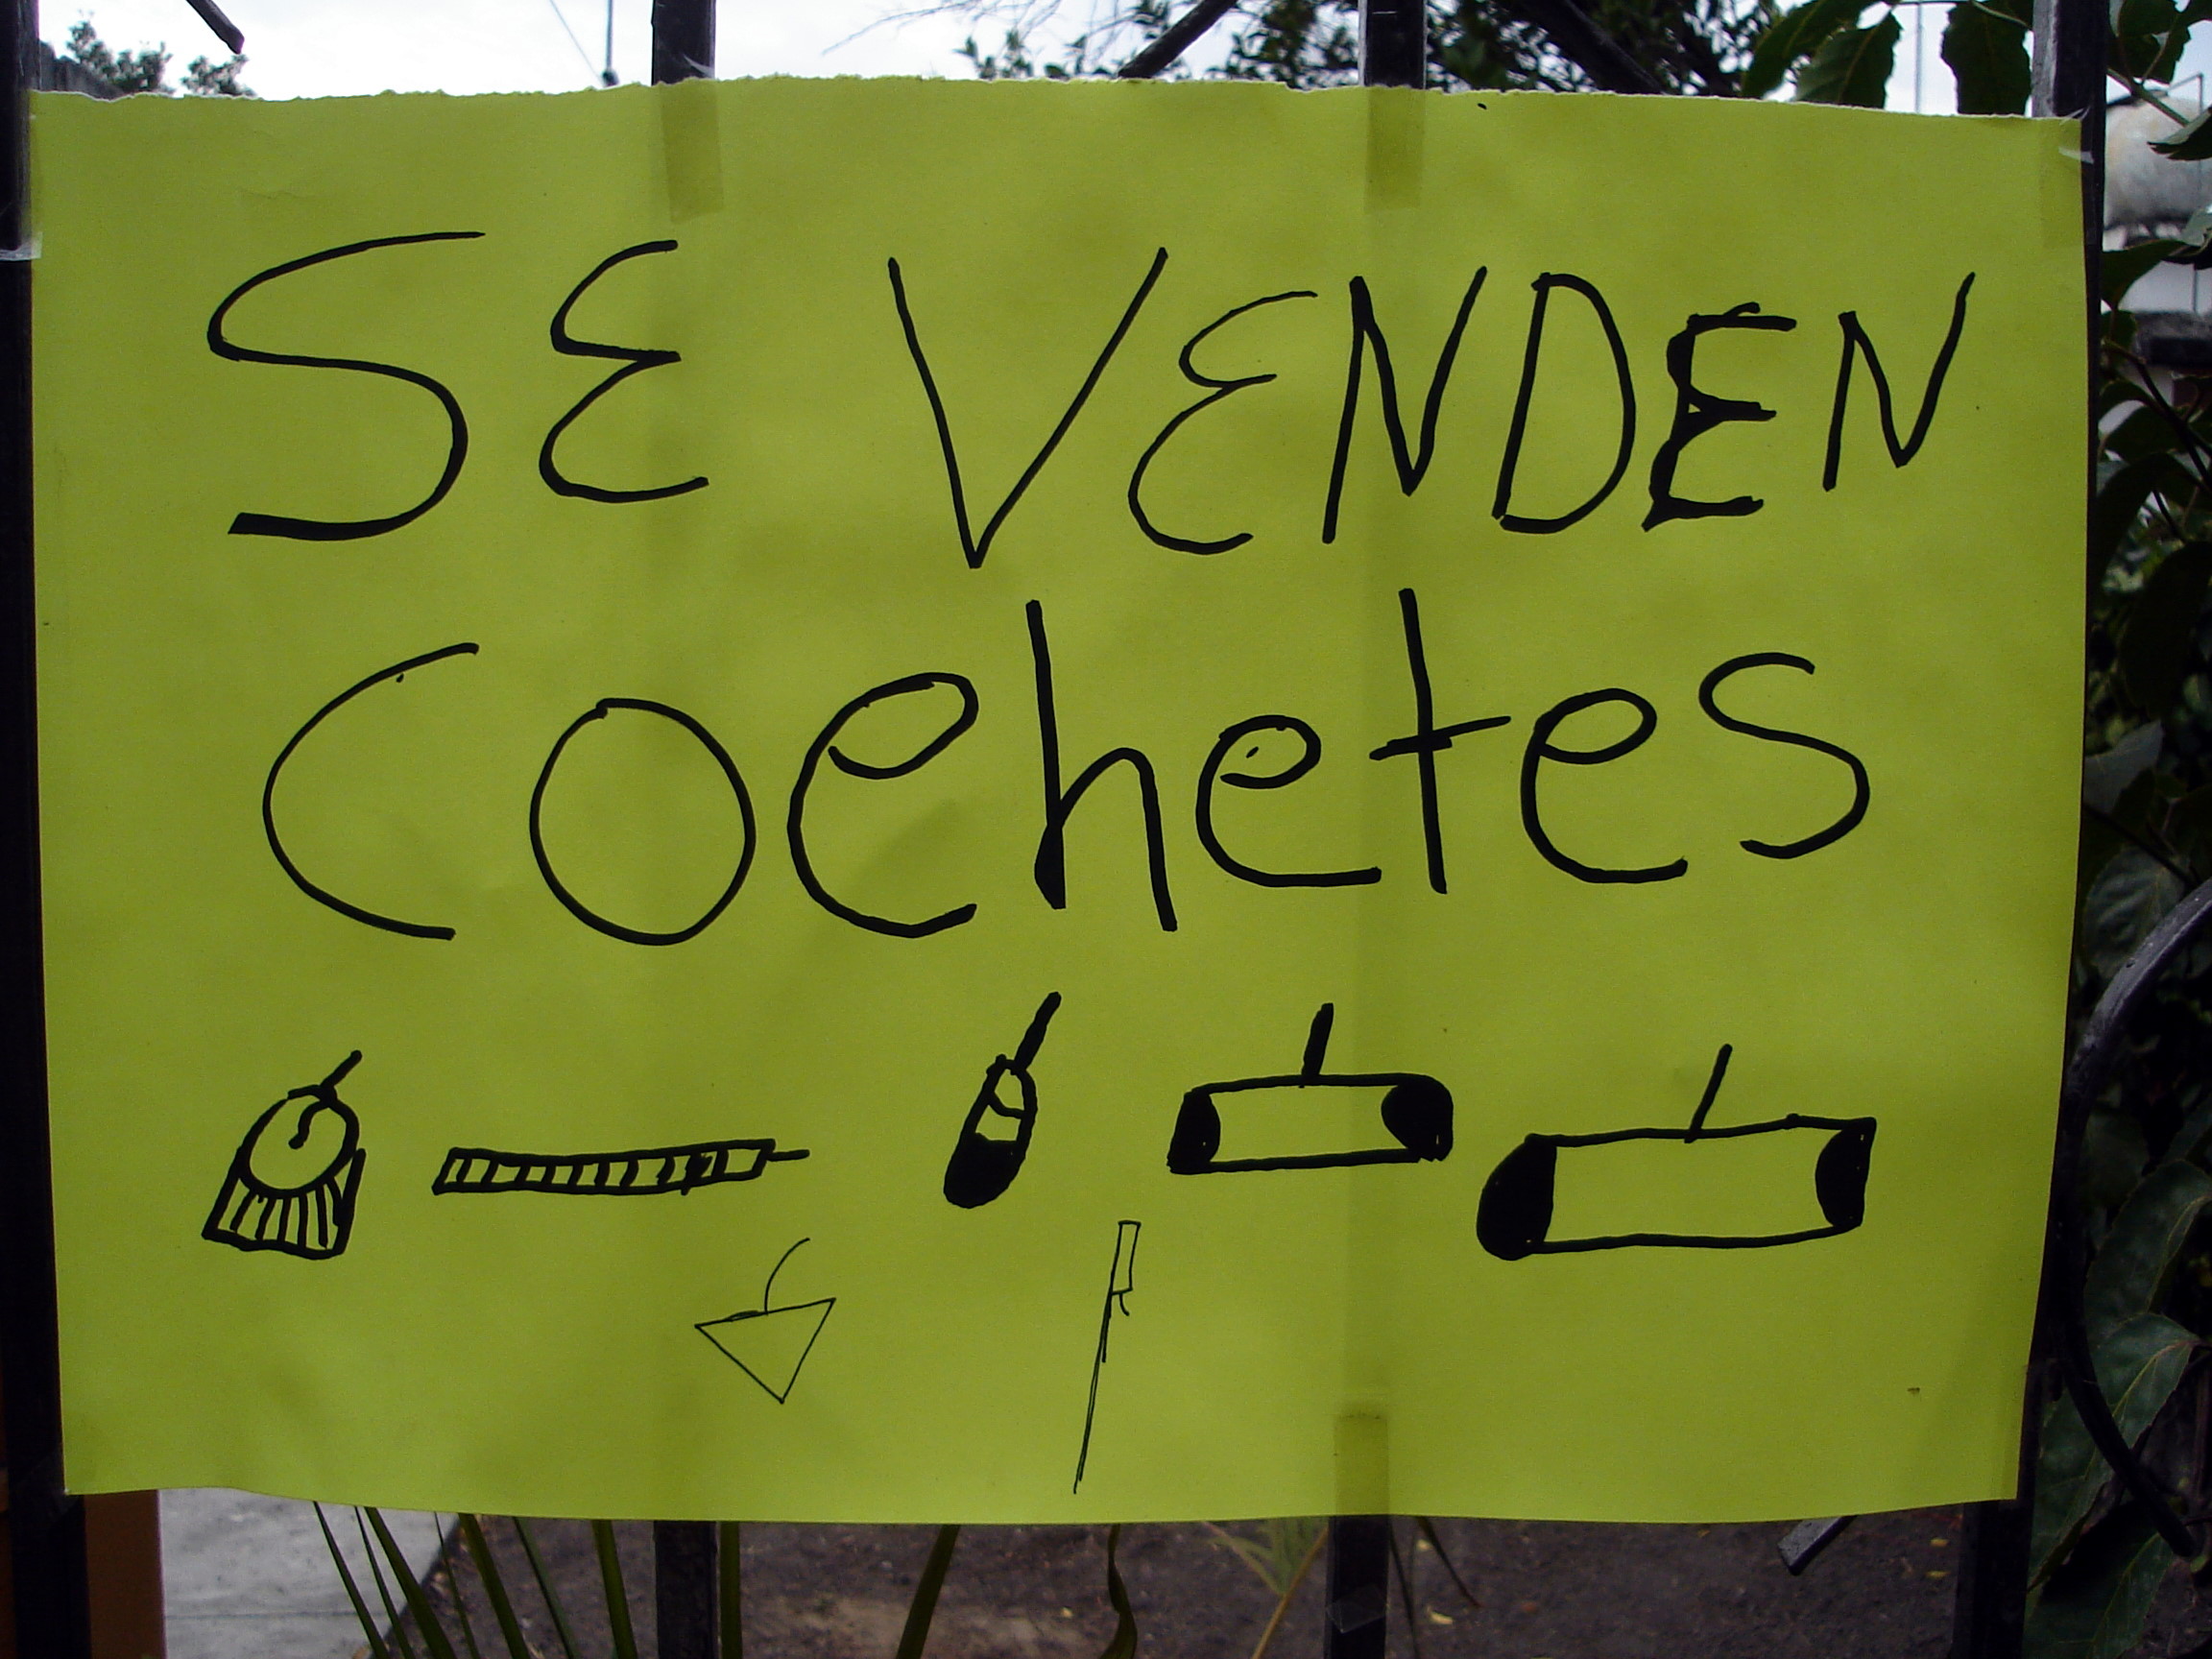 SE VENDEN
Coehetes